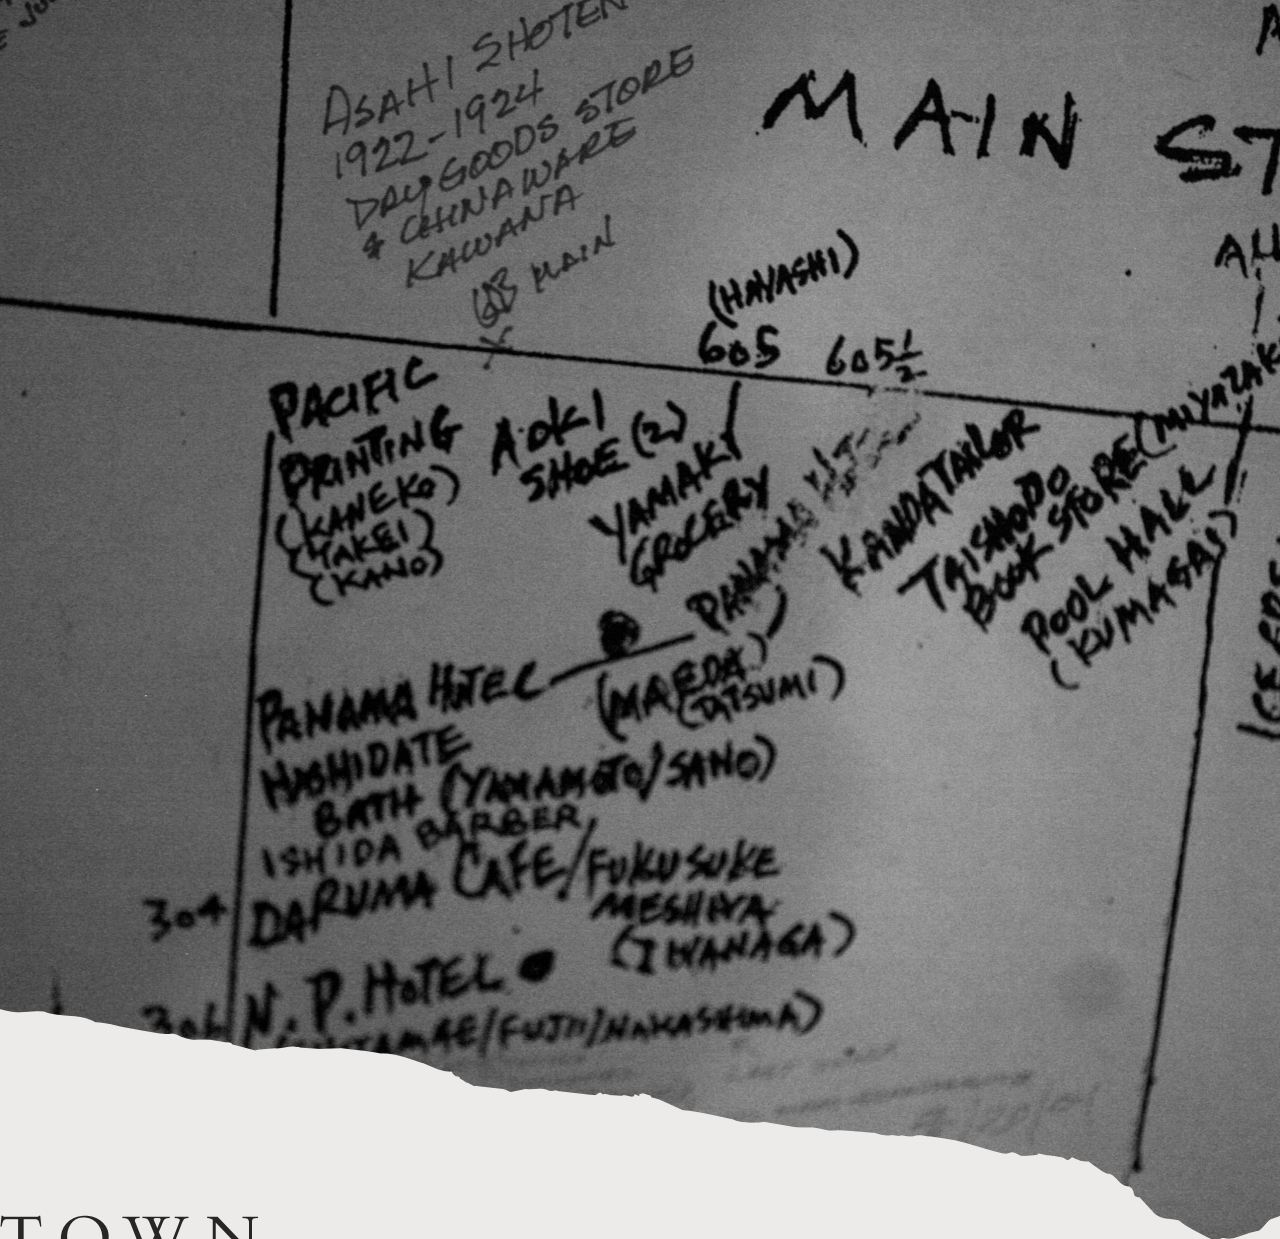 ASAHI SHOTEN
1922-1924
DRY GOODS STORE
& CHINAWARE
KAWANA
MAIN
MAIN ST
(HAYASHI)
605
605½
PACIFIC
PRINTING
(KANEKO)
(TAKEI)
(KANO)
AOKI
SHOE (2)
YAMAKI
GROCERY
PANAMA
KANDA TAILOR
TAISHODO
BOOK STORE (MIYAZAK
POOL HALL
(KUMAGAI)
PANAMA HOTEL
(MAEDA)
(TATSUMI)
HASHIDATE
BATH (YAMAMOTO/SANO)
ISHIDA BARBER
304 DARUMA CAFE/FUKUSUKE
MESHIYA
(IWANAGA)
306 N.P. HOTEL
/FUJII/NAKASHIMA)
TOWN